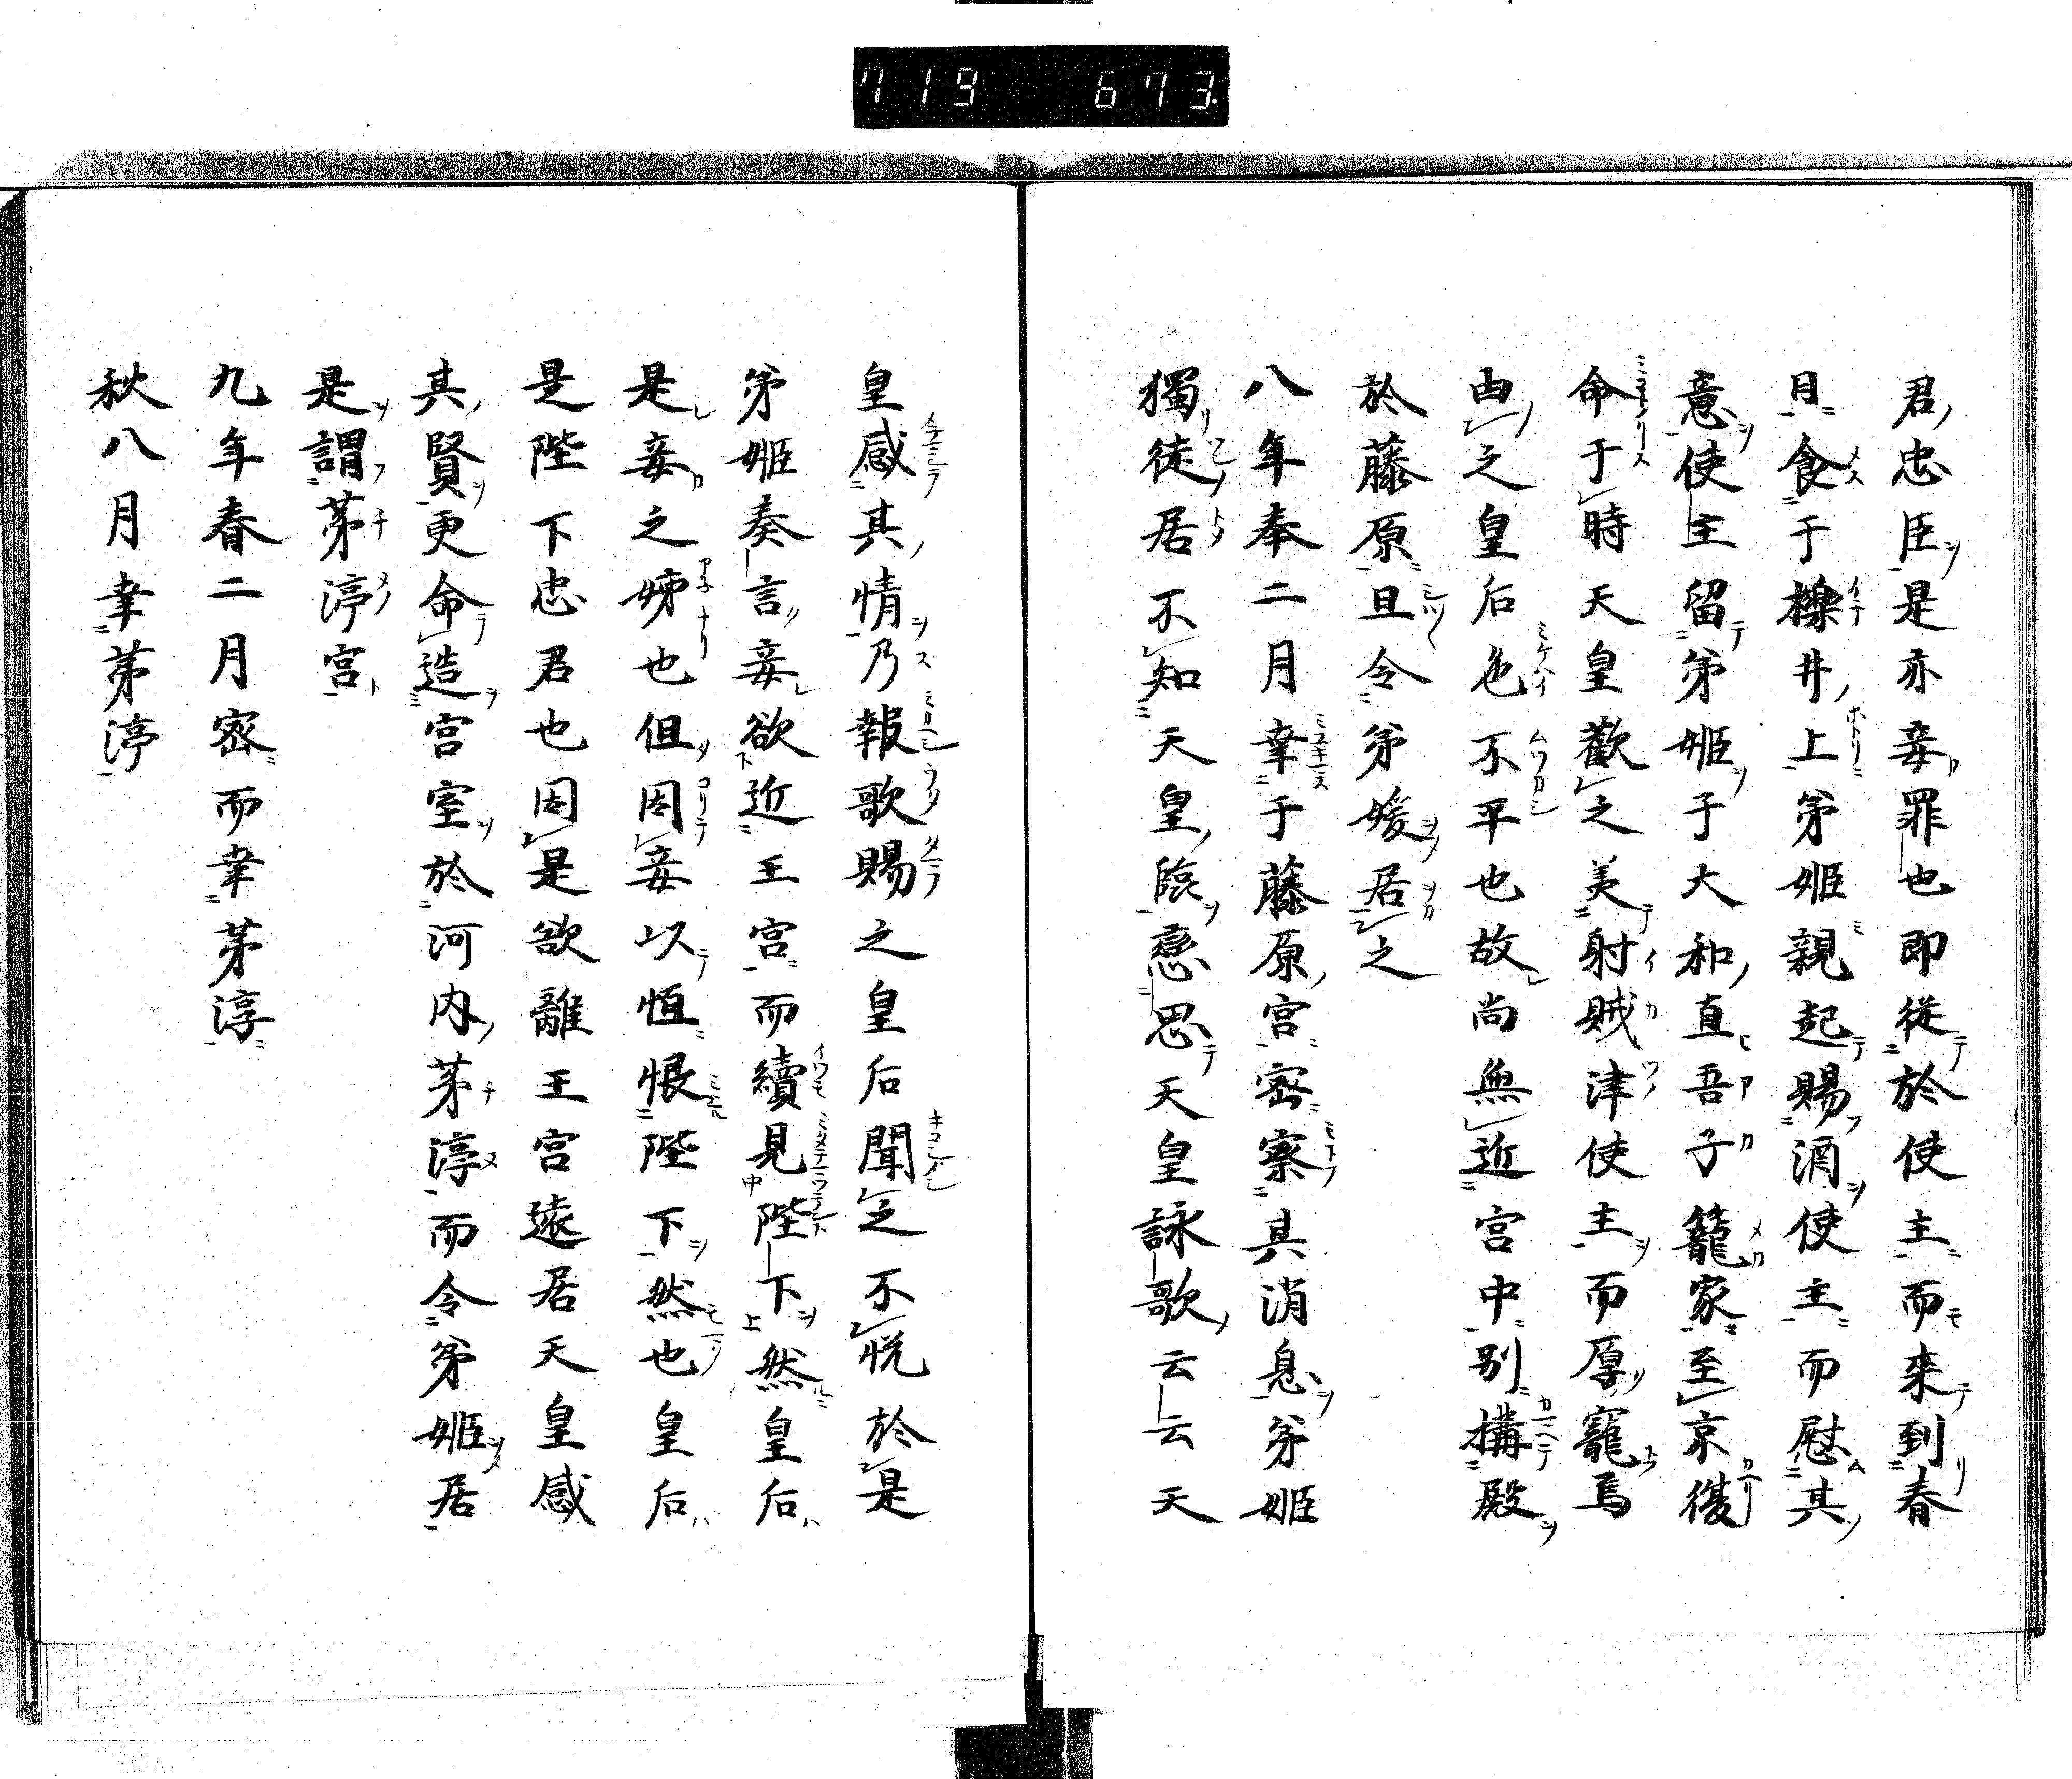 719 673
君忠臣是亦妾罪也即從於使主而來到春
日食于櫟井上弟姫親起賜酒使主而慰其
意使主留弟姫于大和直吾子籠家至京復
命于時天皇歡之美射賊津使主而厚寵焉
由之皇后色不平也故尚無近宮中別構殿
於藤原且令弟媛居之
八年奉二月幸于藤原宮密察其消息弟姫
獨徒居不知天皇臨戀思天皇詠歌云云天
皇感其情乃報歌賜之皇后聞之不悦於是
弟姫奏言妾欲近王宮而續見陛下然皇后
是妾之姉也但因妾以恒恨陛下然也皇后
是陛下忠君也因是欲離王宮遠居天皇感
其賢更命造宮室於河内茅渟而令弟姫居
是謂茅渟宮
九年春二月密而幸茅渟
秋八月幸茅渟